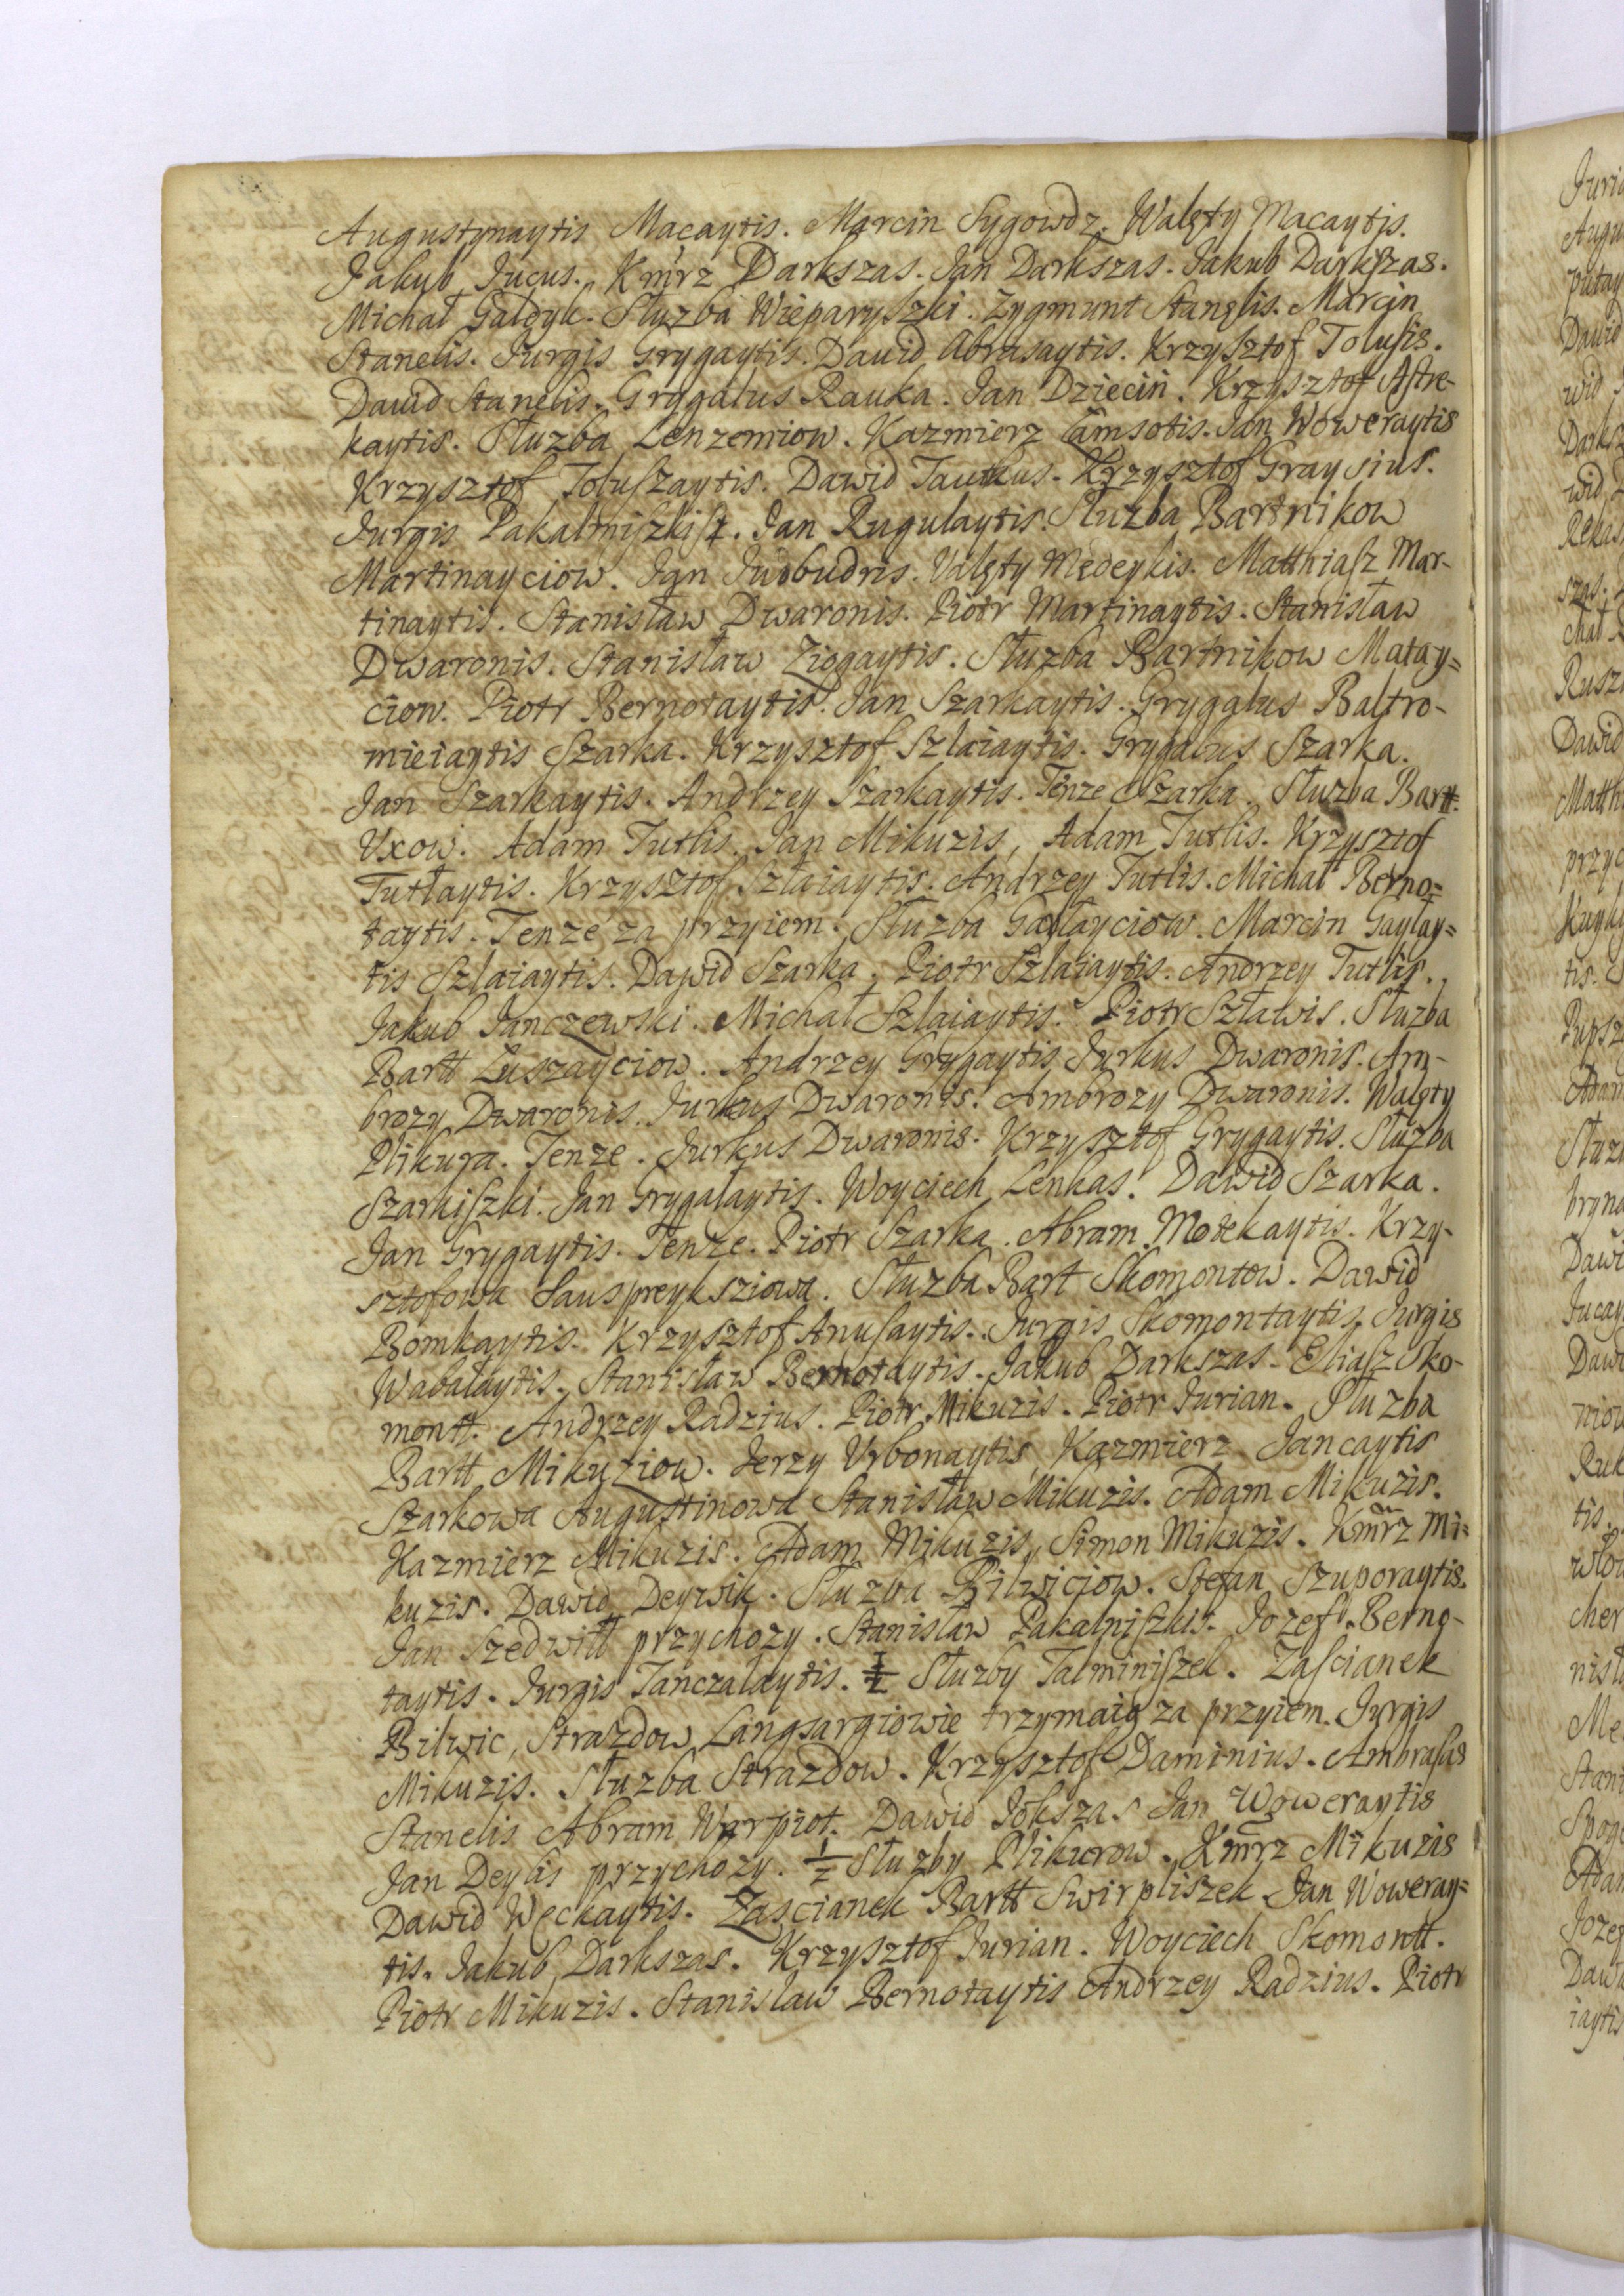 Augustynaytis Macaytis. Marcin Sygowdz. Walęty Macaytis.
Jakub Jucus. Kmrz Darkszas. Jan Darkszas. Jakub Darkszas.
Michał Galdyk. Słuzba Wieparyszki. Zygmunt Stanelis. Marcin
Stanelis. Jurgis Grygaytis. Dauid Abrasaytis. Krzysztof Tolusis.
Dawid Stanelis. Grygalus Rauka. Jan Dziecin. Krzysztof Astre-
kaytis. Słuzba Lenzemiow. Kazmierz Camsotis. Jan Woweraytis
Krzysztof Toluszaytis. Dawid Tautkus. Krzysztof Graysius.
Jurgis Pakalniszkisz. Jan Rugulaytis. Słuzba Bartnikow
Martinayciow. Jan Judbudris. Valęty Medeykis. Matthiasz Mar-
tinaytis. Stanisław Dwaronis. Piotr Martinaytis. Stanisław
Dwaronis. Stanisław Ziogaytis. Słuzba Bartnikow Matay=
ciow. Piotr Bernotaytis. Jan Szarkaytis. Grygalus Baltro-
mieiaytis Szarka. Krzysztof Szlaiaytis. Grygalus Szarka.
Jan Szarkaytis. Andrzey Szarkaytis. Tenze Szarka. Słuzba Bartt.
Vxow. Adam Tutlis. Jan Mikuzis, Adam Tutlis. Krzysztof
Tutłaytis. Krzysztof Szlaiaytis. Andrzey Tutlis. Michał Berno=
taytis. Tenze za przyiem. Słuzba Gaylayciow. Marcin Gaylay=
tis Szlaiaytis. Dawid Szarka. Piotr Szlaiaytis. Andrzey Tutlis.
Jakub Janczewski. Michał Szlaiaytis. Piotr Szławis. Słuzba
Bartt Luszayciow. Andrzey Grygaytis Jurkus Dwaronis. Am-
brozy Dwaronis. Jurkus Dwaronis. Ambrozy Dwaronis. Walęty
Plikura. Tenze. Jurkus Dwaronis. Krzysztof Grygaytis. Słuzba
Szarkiszki. Jan Grygalaytis. Woyciech Lenkas. Dawid Szarka.
Jan Grygaytis. Tenze. Piotr Szarka. Abram Motekaytis. Krzy-
sztofowa Sauspreyksziowa. Słuzba Bart Skomontow. Dawid
Bomkaytis. Krzysztof Anusaytis. Jurgis Skomontaytis. Jurgis
Wabałaytis. Stanisław Bernotaytis. Jakub Darkszas. Eliasz Sko-
montt. Andrzey Radzius. Piotr Mikuzis. Piotr Jurian. Słuzba
Bartt Mikuziow. Jerzy Vrbonaytis Kazmierz Jancaytis
Szarkowa Augustinowa Stanisław Mikuzis. Adam Mikuzis.
Kazmierz Mikuzis. Adam Mikuzis, Simon Mikuzis. Kmrz Mi=
kuzis. Dawid Deywik. Słuzba Bilwiciow. Stefan Szuporaytis.
Jan Szedwiłł przychozy. Stanisław Pakalniszkis. Jozef Berno-
taytis. Jurgis Tanczalaytis. 1/2 Słuzby Talminiszek. Zascianek
Bilwic, Strazdow Langsargiowie trzymaią za przyiem. Jurgis
Mikuzis. Słuzba Strazdow. Krzysztof Daminius. Ambrasas
Stanelis Abram Warpiot. Dawid Jokszas Jan Woweraytis
Jan Deylis przychozy. 1/2 Słuzby Plikurow. Kmrz Mikuzis
Dawid Węckaytis. Zascianek Bartt Swirpliszek. Jan Woweray=
tis. Jakub Darkszas. Krzysztof Jurian. Woyciech Skomontt.
Piotr Mikuzis. Stanisław Bernotaytis Andrzey Radzius. Piotr